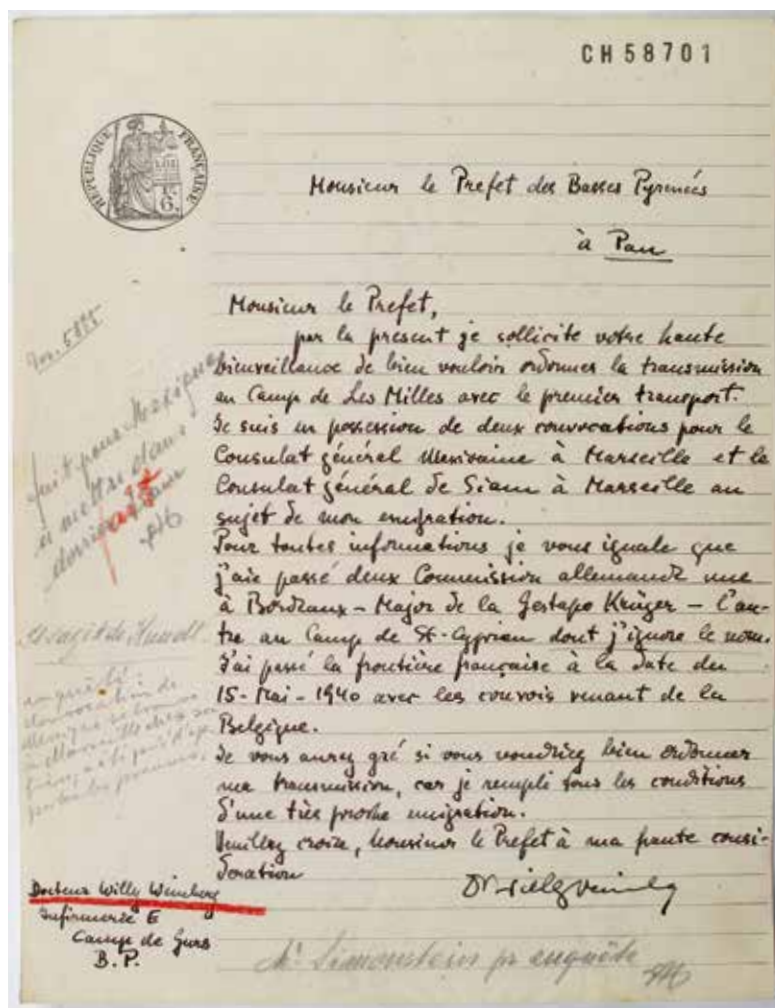 CH58701
RÉPUBLIQUE FRANÇAISE
LOI
6
Monsieur le Prefet des Basses Pyrenées
à Pau
Monsieur le Prefet,
par la present je sollicite votre haute
bienveillance de bien vouloir ordonner la transmission
au Camp de Les Milles avec le premier transport.
Je suis en possession de deux convocations pour le
Consulat général Mexicaine à Marseille et le
Consulat général de Siam à Marseille au
sujet de mon emigration.
Pour toutes informations je vous signale que
j'aie passé deux Commission allemande une
à Bordeaux - Major de la Gestapo Krüger - l'au-
tre au Camp de St-Cyprien dont j'ignore le nom.
J'ai passé la frontière française à la date du
15-Mai-1940 avec les convois venant de la
Belgique.
Je vous aurez gré si vous voudriez bien ordonner
ma transmission, car je rempli tous les conditions
d'une très proche emigration.
Veuillez croire, Monsieur le Prefet à ma haute consi-
deration
Dr Willy Weinberg
fait pour Mexique
à mettre dans
dossier
fait
convocation de
à Marseille
Docteur Willy Weinberg
Infirmerie E
Camp de Gurs
B.P.
Mr Simonstein pr enquête